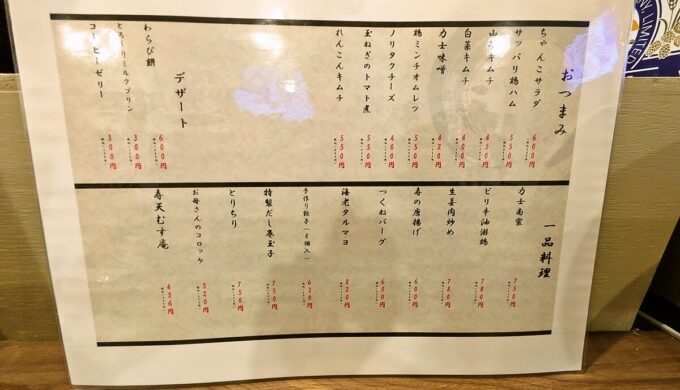 おつまみ
ちゃんこサラダ 600円
サッパリ鶏ハム 550円
山芋キムチ 450円
白菜キムチ 400円
力士味噌 420円
鶏ミンチオムレツ
ノリタクチーズ 400円
玉ねぎのトマト煮 550円
れんこんキムチ 550円
デザート
わらび餅 600円
とろ〜りミルクプリン 300円
コーヒーゼリー 300円
一品料理
力士南蛮 750円
ピリ辛油淋鶏 780円
生姜肉炒め 780円
寿の唐揚げ 600円
つくねバーグ 600円
海老タルマヨ 820円
手作り餃子(8個入) 630円
特製だし巻玉子 750円
とりちり 750円
お母さんのコロッケ 520円
寿天むす庵 436円
LIMITED